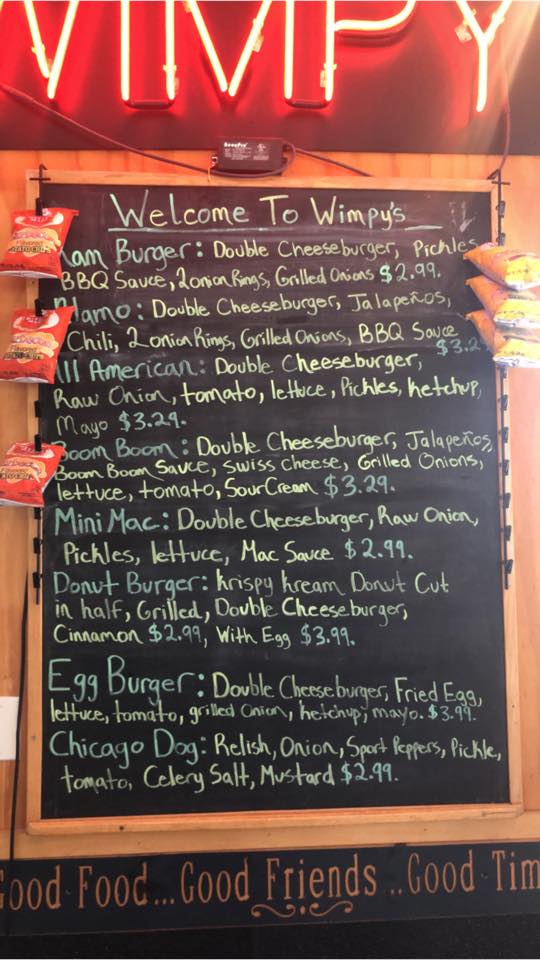 WIMPY
Welcome To Wimpy's
am Burger: Double Cheeseburger, Pickles
BBQ Sauce, 2 onion Rings, Grilled Onions $2.99.
lamo: Double Cheeseburger, Jalapeños,
Chili, 2 onion Rings, Grilled Onions, BBQ Sauce
$3.2
All American: Double Cheeseburger,
Raw Onion, tomato, lettuce, Pickles, ketchup,
Mayo $3.29.
Boom Boom: Double Cheeseburger, Jalapeños,
Boom Boom Sauce, Swiss cheese, Grilled Onions,
lettuce, tomato, Sour Cream $3.29.
Mini Mac: Double Cheeseburger, Raw Onion,
Pickles, lettuce, Mac Sauce $2.99.
Donut Burger: krispy kream Donut Cut
in half, Grilled, Double Cheeseburger,
Cinnamon $2.99, With Egg $3.99.
Egg Burger: Double Cheeseburger, Fried Egg,
lettuce, tomato, grilled Onion, ketchup, mayo. $3.99.
Chicago Dog: Relish, Onion, Sport Peppers, Pickle,
tomato, Celery Salt, Mustard $2.99.
Good Food...Good Friends ..Good Tim